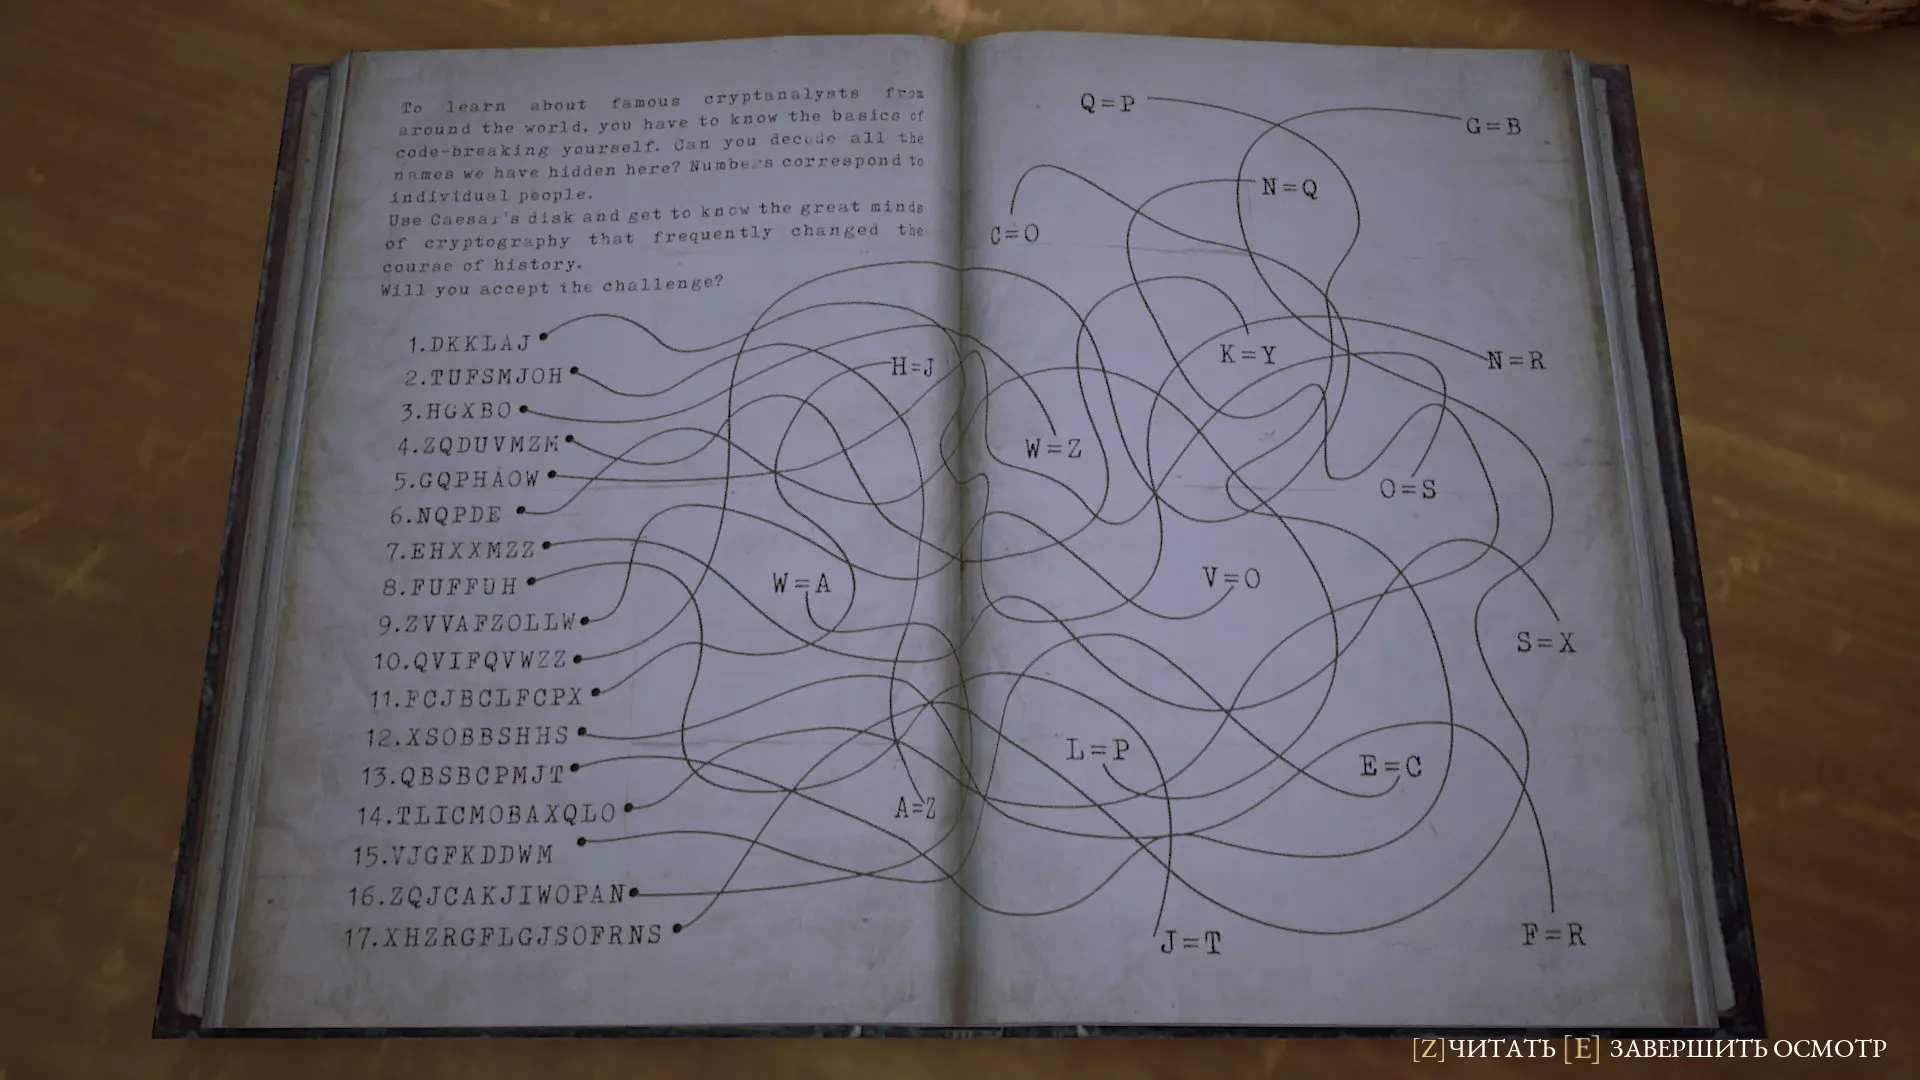 To learn about famous cryptanalysts from
around the world, you have to know the basics of
code-breaking yourself. Can you decode all the
names we have hidden here? Numbers correspond to
individual people.
Use Caesar's disk and get to know the great minds
of cryptography that frequently changed the
course of history.
Will you accept the challenge?
1.DKKLAJ
2.TUFSMJOH
3.HGXBO
4.ZQDUVMZM
5.GQPHAOW
6.NQPDE
7.EHXXMZZ
8.FUFFUH
9.ZVVAFZOLLW
10.QVIFQVWZZ
11.FCJBCLFCPX
12.XSOBBSHHS
13.QBSBCPMJT
14.TLICMOBAXQLO
15.VJGFKDDWM
16.ZQJCAKJIWOPAN
17.XHZRGFLGJSOFRNS
H=J
W=A
A=Z
Q=P
G=B
N=Q
C=O
K=Y
N=R
W=Z
O=S
V=O
S=X
L=P
E=C
J=T
F=R
[Z]ЧИТАТЬ [E] ЗАВЕРШИТЬ ОСМОТР